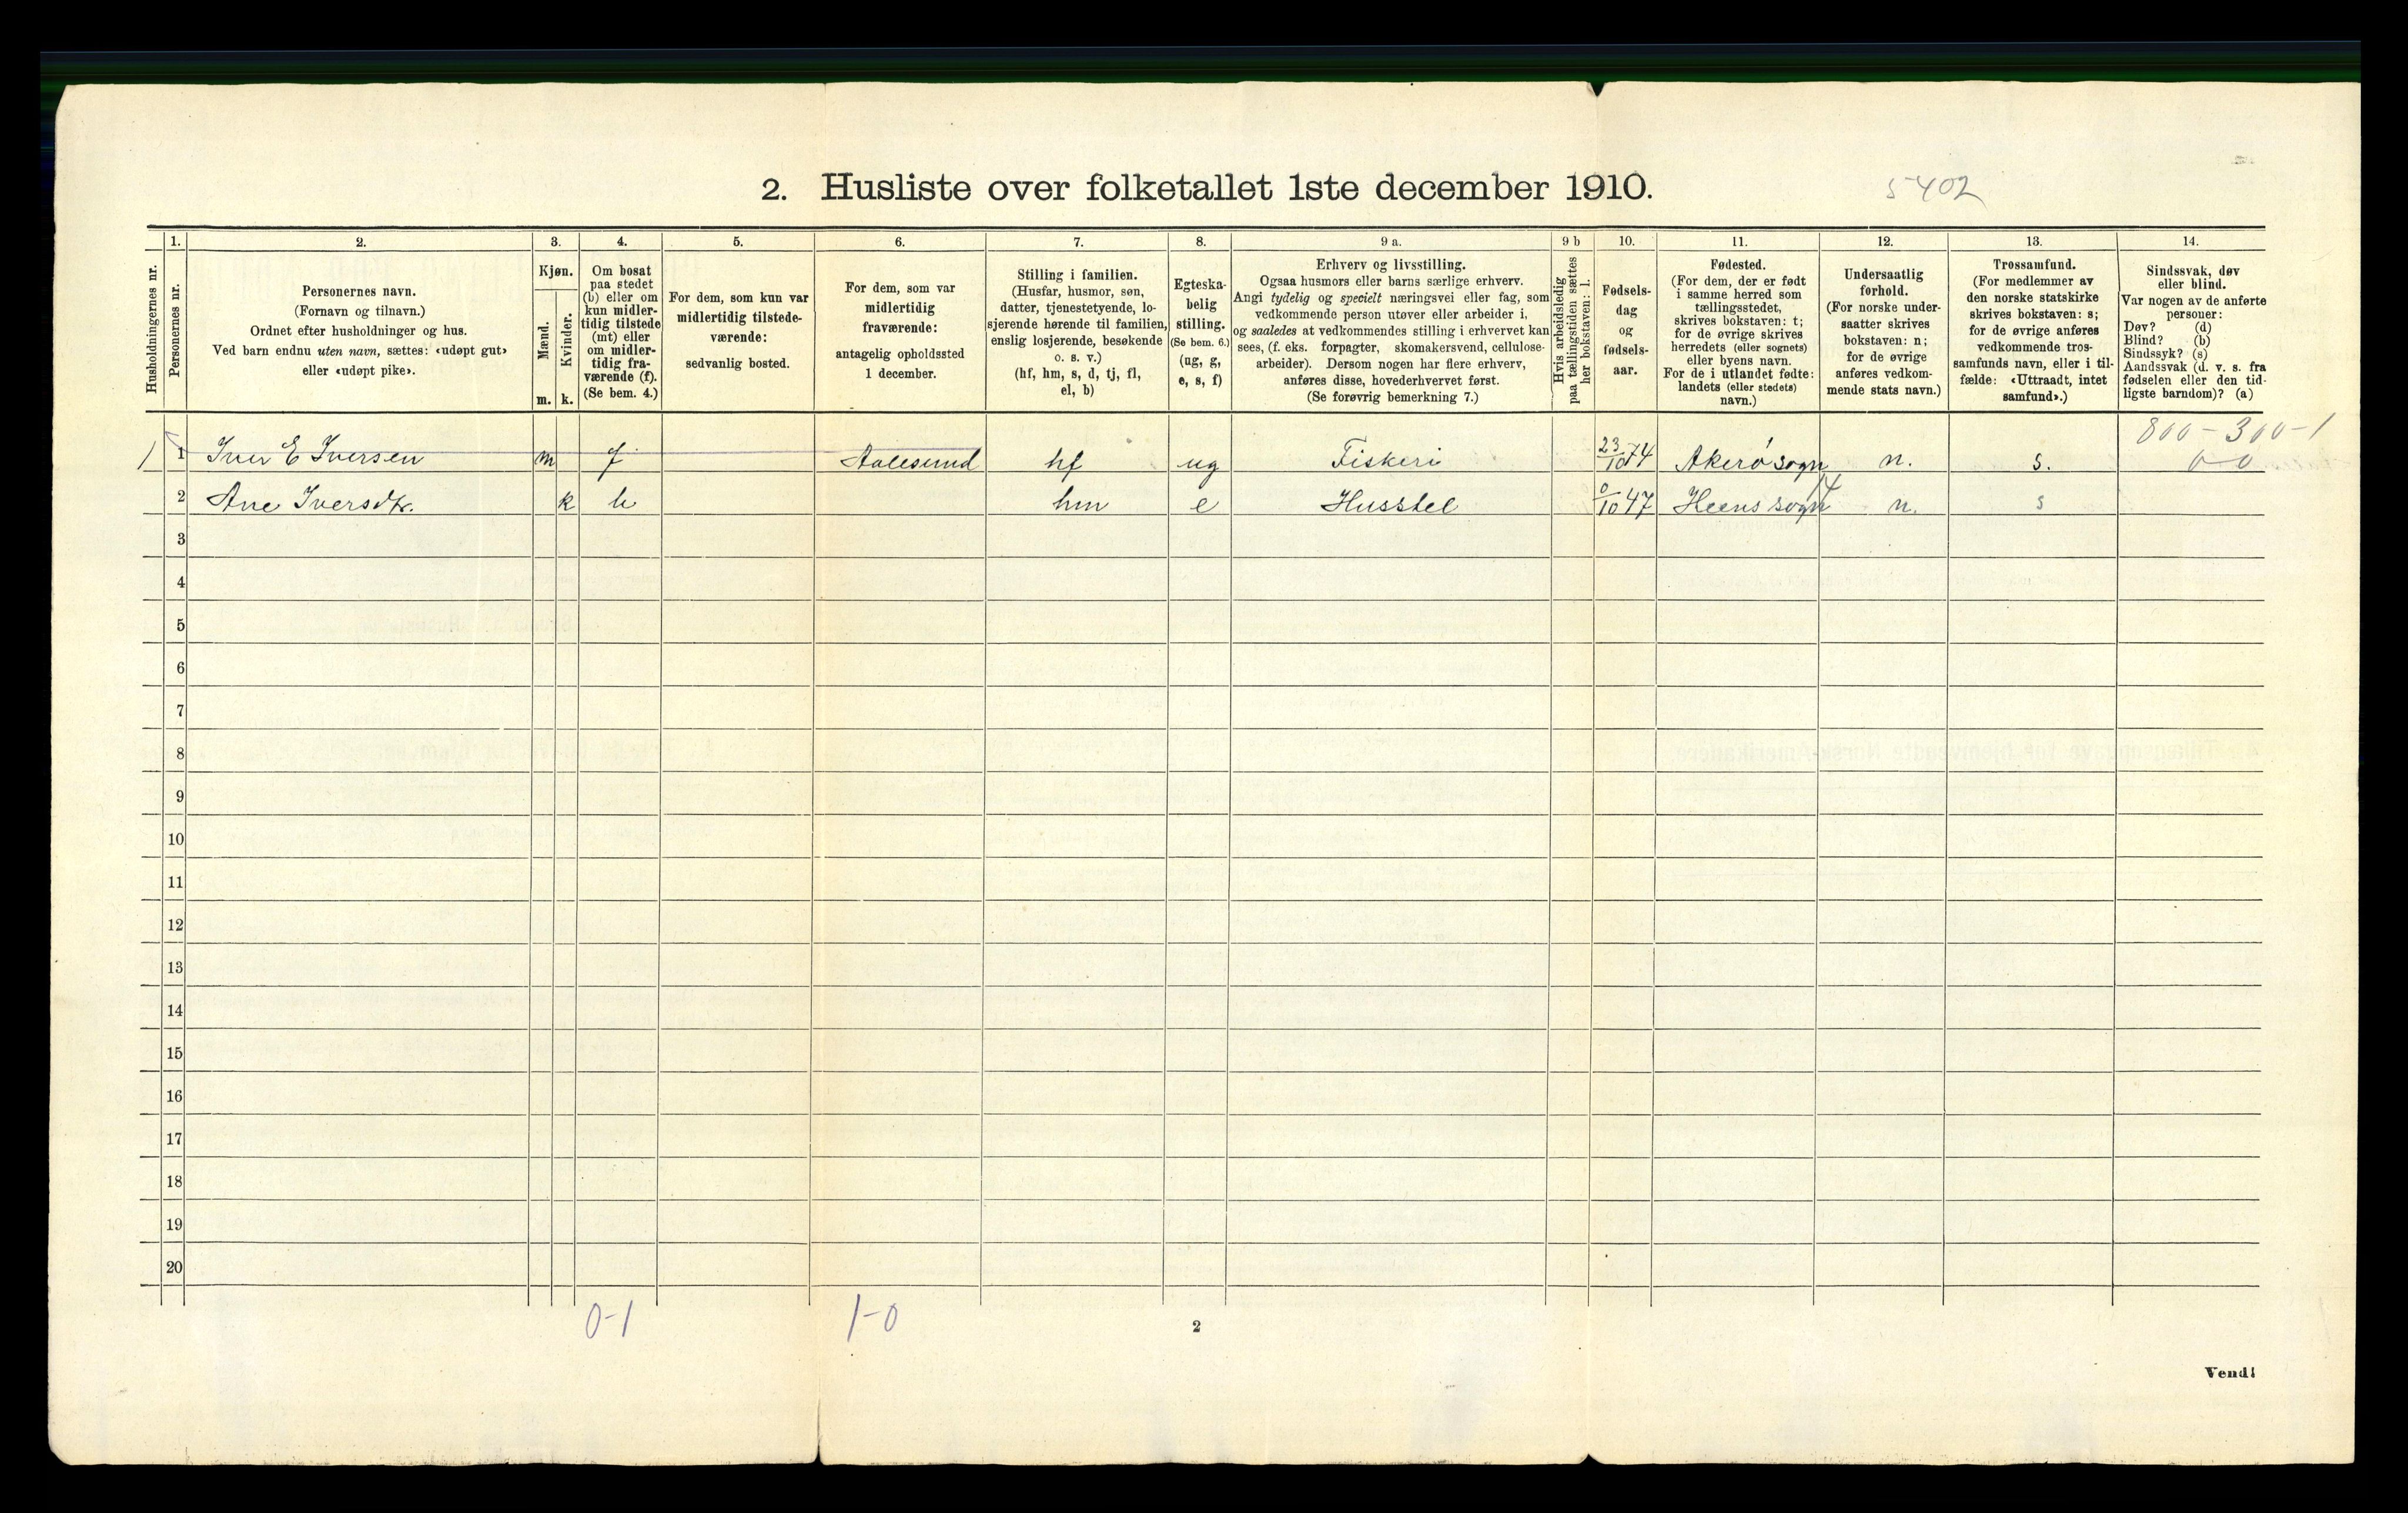 2. Husliste over folketallet 1ste december 1910.
5402
Husholdningernes nr.
1.
Personernes nr.
2.
Personernes navn.
(Fornavn og tilnavn.)
Ordnet efter husholdninger og hus.
Ved barn endnu uten navn, sættes: «udøpt gut»
eller «udøpt pike».
3.
Kjøn.
Mænd.
Kvinder.
m. k.
4.
Om bosat
paa stedet
(b) eller om
kun midler-
tidig tilstede
(mt) eller
om midler-
tidig fra-
værende (f).
(Se bem. 4.)
5.
For dem, som kun var
midlertidig tilstede-
værende:
sedvanlig bosted.
6.
For dem, som var
midlertidig
fraværende:
antagelig opholdssted
1 december.
7.
Stilling i familien.
(Husfar, husmor, søn,
datter, tjenestetyende, lo-
sjerende hørende til familien,
enslig losjerende, besøkende
o. s. v.)
(hf, hm, s, d, tj, fl,
el, b)
8.
Egteska-
belig
stilling.
(Se bem. 6.)
(ug, g,
e, s, f)
9 a.
Erhverv og livsstilling.
Ogsaa husmors eller barns særlige erhverv.
Angi tydelig og specielt næringsvei eller fag, som
vedkommende person utøver eller arbeider i,
og saaledes at vedkommendes stilling i erhvervet kan
sees, (f. eks. forpagter, skomakersvend, cellulose-
arbeider). Dersom nogen har flere erhverv,
anføres disse, hovederhvervet først.
(Se forøvrig bemerkning 7.)
9 b
Hvis arbeidsledig
paa tællingstiden sættes
her bokstaven: l.
10.
Fødsels-
dag
og
fødsels-
aar.
11.
Fødested.
(For dem, der er født
i samme herred som
tællingsstedet,
skrives bokstaven: t;
for de øvrige skrives
herredets (eller sognets)
eller byens navn.
For de i utlandet fødte:
landets (eller stedets)
navn.)
12.
Undersaatlig
forhold.
(For norske under-
saatter skrives
bokstaven: n;
for de øvrige
anføres vedkom-
mende stats navn.)
13.
Trossamfund.
(For medlemmer av
den norske statskirke
skrives bokstaven: s;
for de øvrige anføres
vedkommende tros-
samfunds navn, eller i til-
fælde: «Uttraadt, intet
samfund».)
14.
Sindssvak, døv
eller blind.
Var nogen av de anførte
personer:
Døv? (d)
Blind? (b)
Sindssyk? (s)
Aandssvak (d. v. s. fra
fødselen eller den tid-
ligste barndom)? (a)
800-300-1
1 1 Iver E Iversen m f Aalesund hf ug Fiskeri 23/10 74 Akerø sogn n. s. 0-0
2 Ane Iversdtr. k b hm e Husstel 0/10 47 Heens sogn 14 n. s
3
4
5
6
7
8
9
10
11
12
13
14
15
16
17
18
19
20
0-1 1-0
2
Vend!